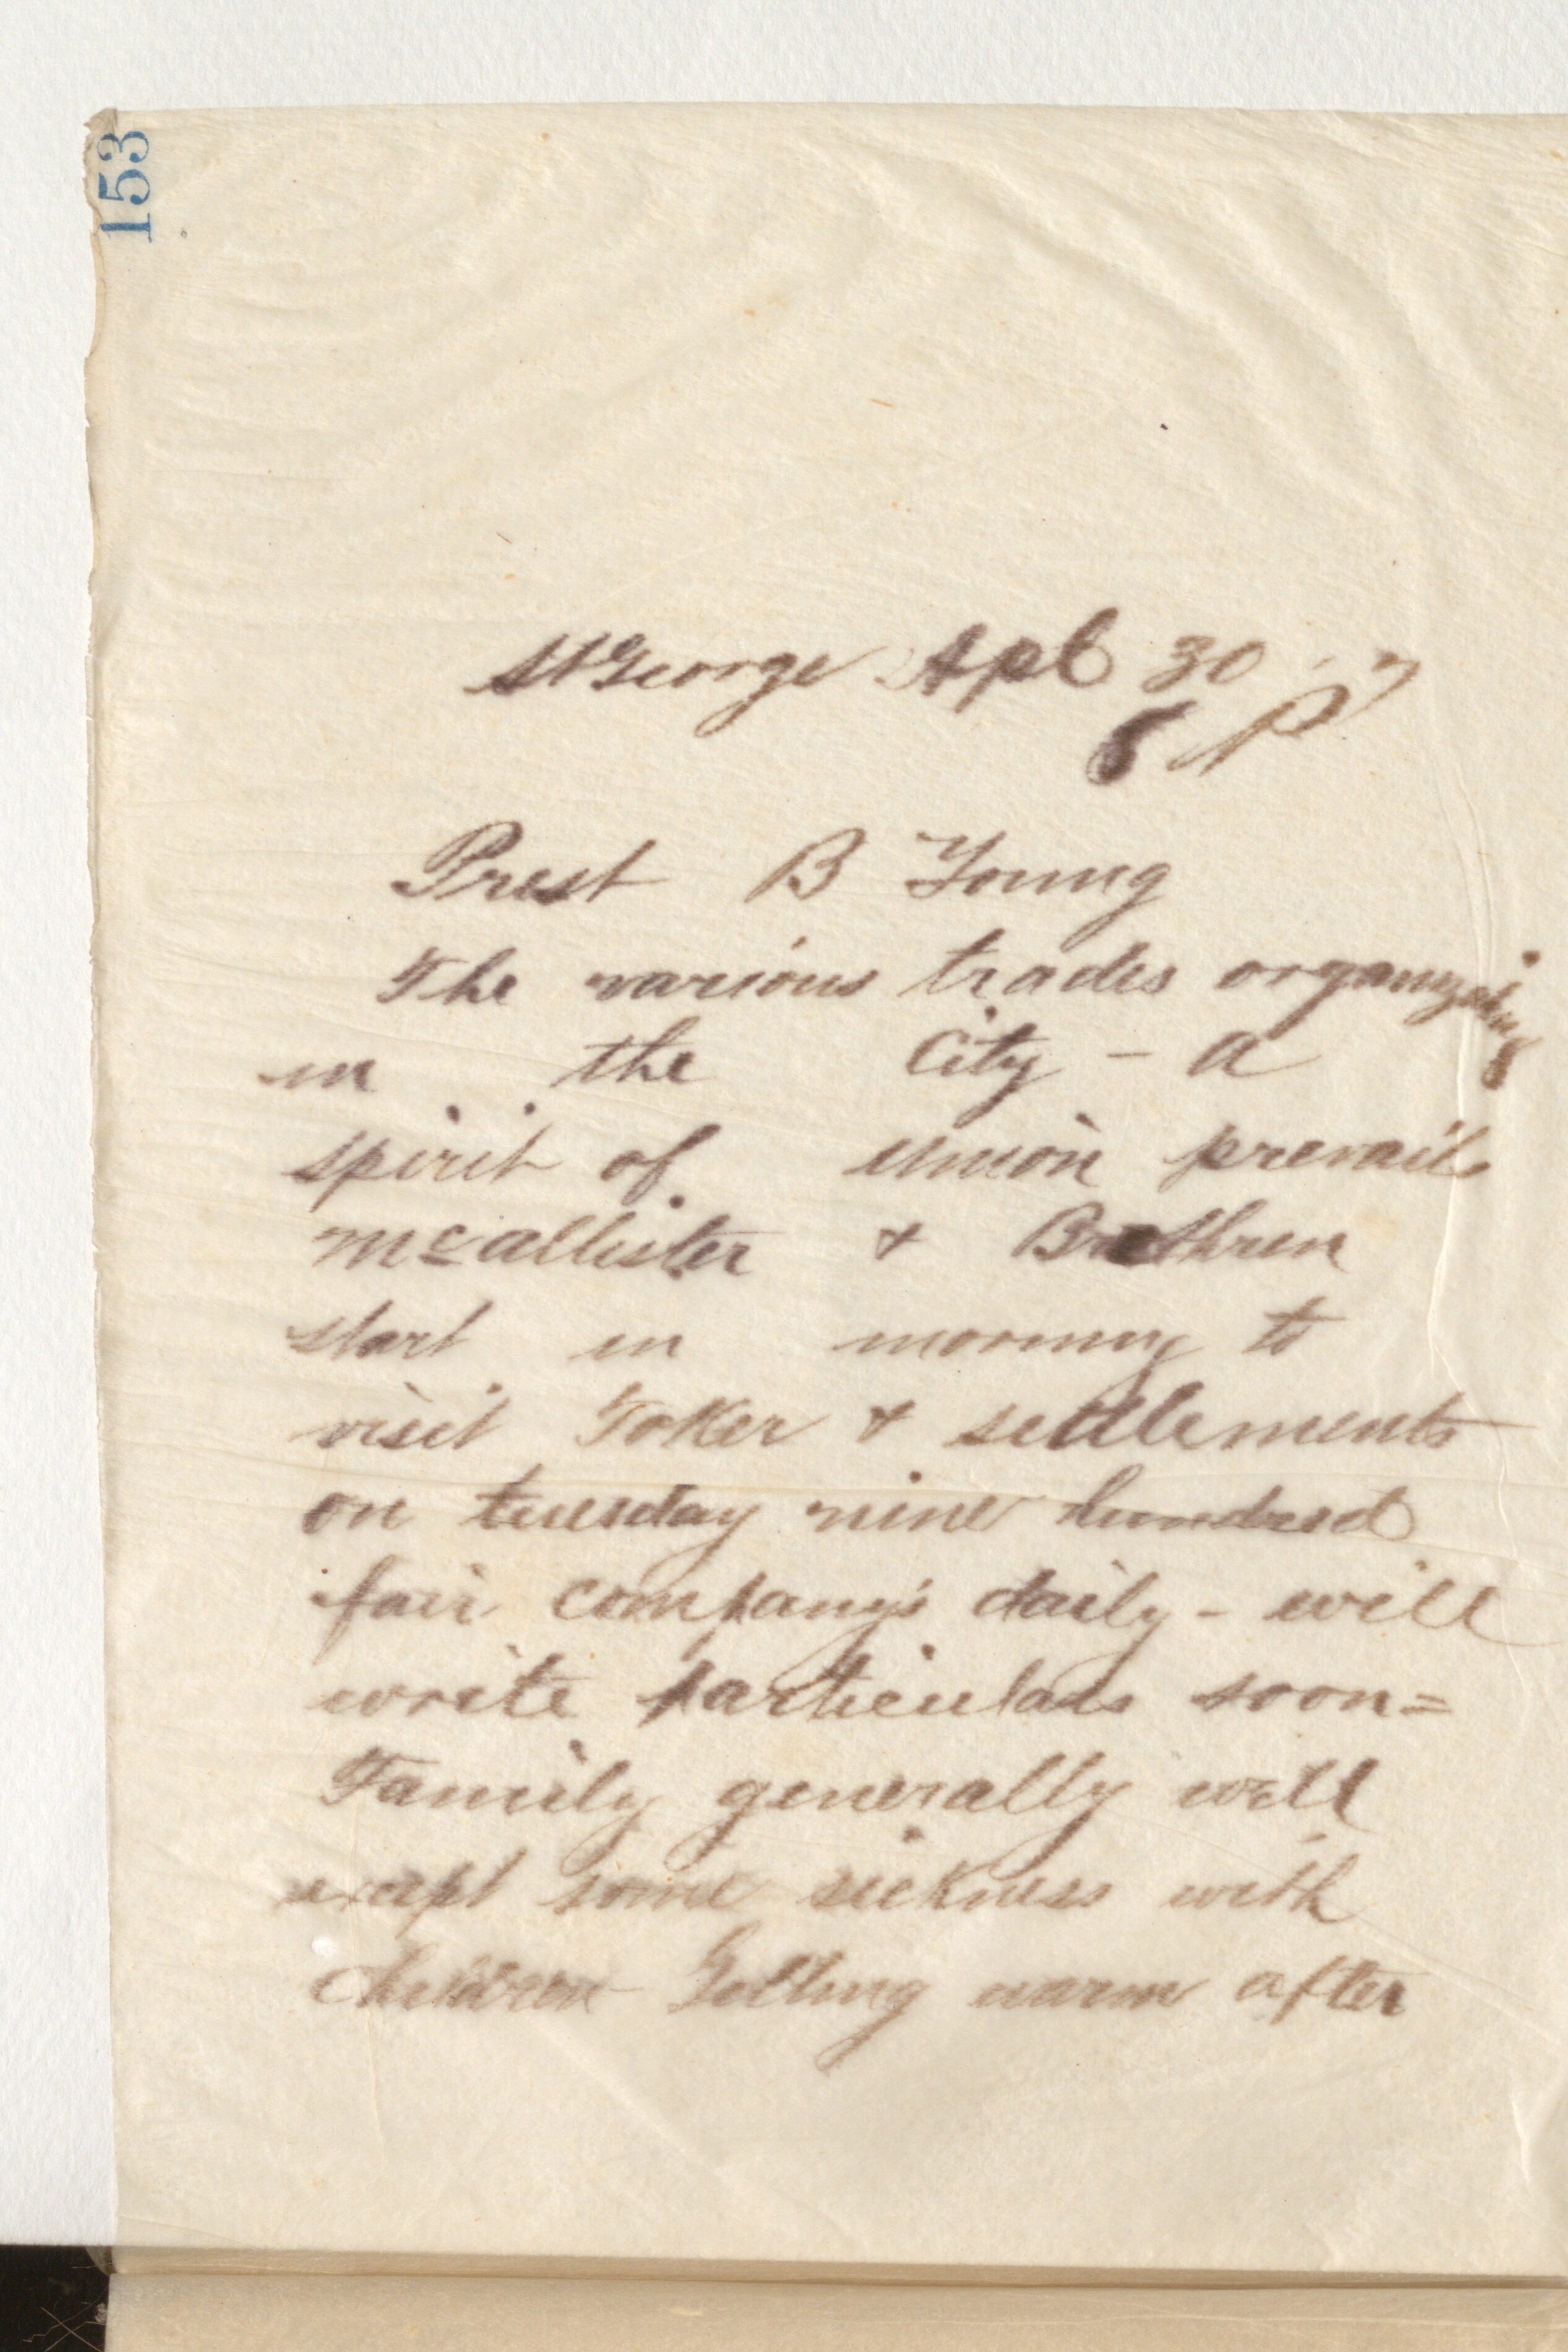 153
St George Apl 30
8 P
Prest B Young
The various trades organizing
in the City - a
spirit of union prevails
McAllister & Brethren
start in morning to
visit Toker & settlements
on tuesday nine hundred
fair company's daily - will
write particulars soon=
Family generally well
except some sickness with
children Getting warm after